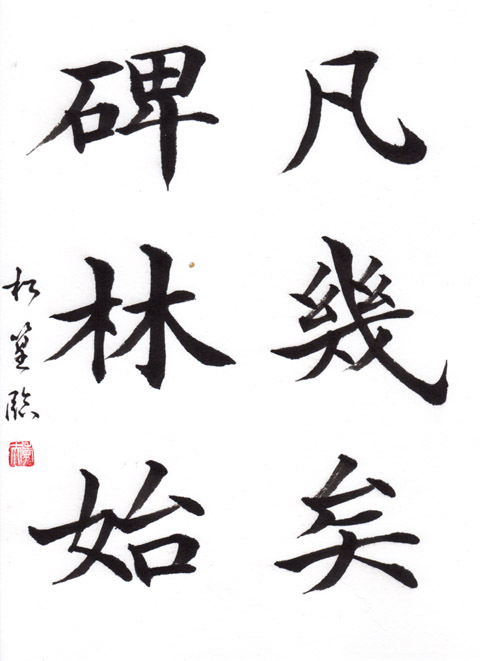 凡幾矣
碑林始
松篁臨